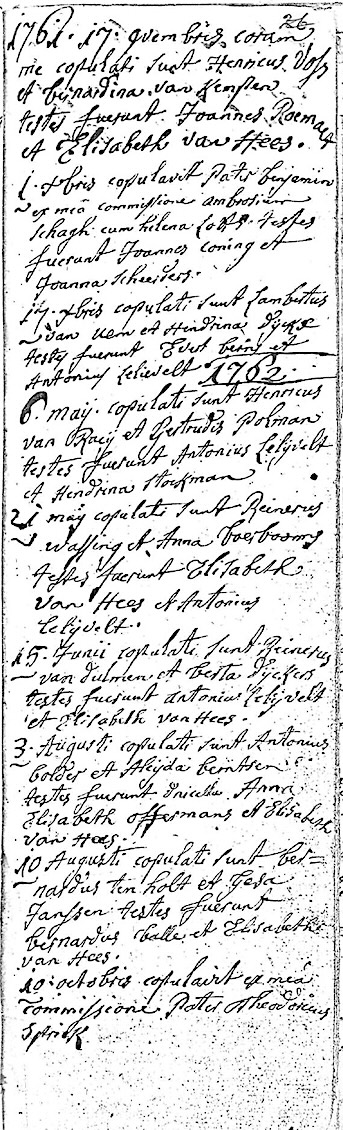 26
1761. 17. 9vembris coram
me copulati sunt Henricus Voss
et bernardina van Kempen
testes fuerunt Joannes Roemaet
et Elisabeth van Hees.
1. xbris copulavit Pater benjamin
ex meâ commissione ambrosium
Schagh cum helena Lotts. testes
fuerunt Joannes coning et
Joanna Scheiders.
17. xbris copulati sunt Lambertus
van uem et Hindrina Dijcks
testes fuerunt Evert beins et
Antonius Lelivelt 1762.
6. maij. copulati sunt Henricus
van Raeij et Gertrudis Polman
testes fuerunt Antonius Lelijvelt
et Hendrina Stockman
21 maij copulati sunt Reinerus
wassing et Anna boerbooms
testes fuerunt Elisabeth
van Hees et Antonius
Lelijvelt.
15. Junii copulati sunt Reinerus
van dulmen et berta Dijckers
testes fuerunt antonius Lelijvelt
et Elisabeth van Hees.
3. Augusti copulati sunt Antonius
bolder et Aleijda berntsen
testes fuerunt Anna
Elisabeth offermans et Elisabeth
van Hees.
10 Augusti copulati sunt ber=
nardus ten holt et Gesa
Janssen testes fuerunt
bernardus balle et Elisabeth
van Hees.
10. octobris copulavit ex meâ
commissione Pater Theodorus
Sprick